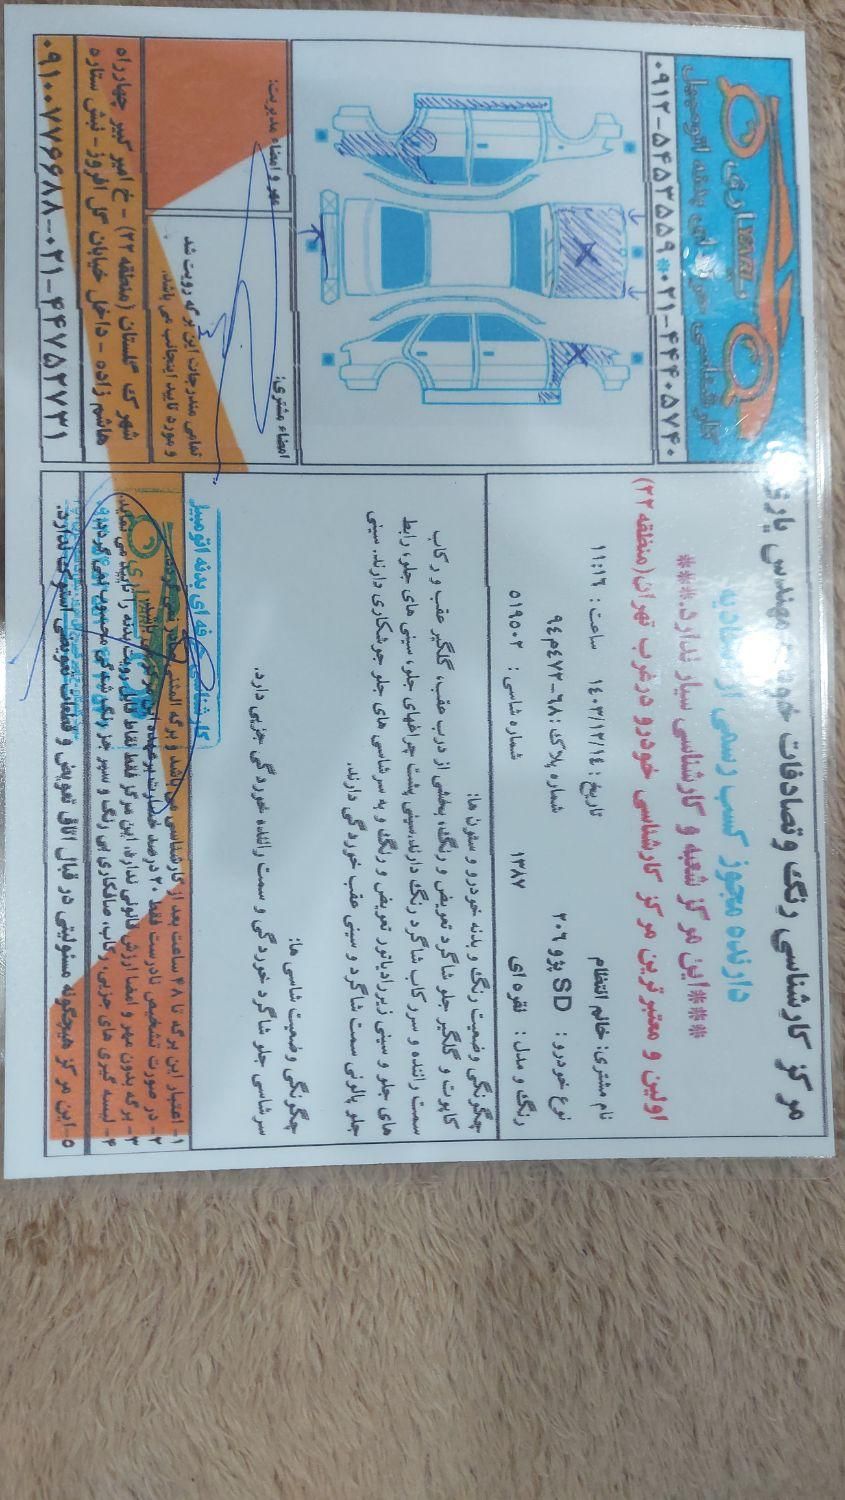 مرکز کارشناسی رنگ و تصادفات خودرو مهندس یاری
دارنده مجوز کسب رسمی از اتحادیه
***این مرکز شعبه و کارشناسی سیار ندارد.***
اولین و معتبرترین مرکز کارشناسی خودرو درغرب تهران(منطقه ۲۲)
نام مشتری: خانم انتظام
تاریخ : ۱۴۰۳/۱۲/۱۴
ساعت : ۱۱:۱۶
نوع خودرو : پژو ۲۰۶ SD
شماره پلاک : ۶۸-۴۷۲م۹۴
رنگ و مدل : نقره ای ۱۳۸۷
شماره شاسی : ۵۱۹۵۰۲
چگونگی وضعیت رنگ و بدنه خودرو و ستون ها:
کاپوت و گلگیر جلو شاگرد تعویض و رنگ، بخشی از درب عقب، گلگیر عقب و رکاب
سمت راننده و سررکاب شاگرد رنگ دارند.سینی پشت چراغهای جلو، سینی های جلو، رابط
های جلو و سینی زیررادیاتور تعویض و رنگ و به سرشاسی های جلو جوشکاری دارند. سینی
جلو پالونی سمت شاگرد و سینی عقب خوردگی دارند.
چگونگی وضعیت شاسی ها:
سرشاسی جلو شاگرد خوردگی و سمت راننده خوردگی جزیی دارد.
کارشناسی حرفه ای بدنه اتومبیل
۱- اعتبار این برگه تا ۴۸ ساعت بعد از کارشناسی می باشد و برگه المثنی صادر نمی گردد.
۲- در صورت تشخیص نادرست فقط ۲۰ درصد خسارت برعهده این مرکز می باشد.
۳- برگه بدون مهر و امضا ارزش قانونی ندارد. این مرکز فقط نقاط قابل رویت بدنه را تایید می نماید.
۴- لیسه گیری های جزیی، رکاب، صافکاری بی رنگ و سپر جز رنگ شدگی محسوب نمی گردند.
۵-این مرکز هیچگونه مسئولیتی در قبال اتاق تعویض و قطعات تعویضی استوک ندارد.
یاری
YARI
کارشناسی حرفه ای بدنه اتومبیل
۰۹۱۲-۵۴۵۳۵۵۹*۰۲۱-۴۴۴۰۵۷۴۰
امضاء مشتری:
تمامی مندرجات این برگه رویت شد
و مورد تایید اینجانب می باشد.
مهر و امضاء مدیریت:
شهرک گلستان (منطقه ۲۲) - خ امیر کبیر چهارراه
هاشم زاده - داخل خیابان گل افروز - نبش ستاره
۰۹۱۰۰۷۷۶۶۸۸-۰۲۱-۴۴۷۵۲۷۳۱